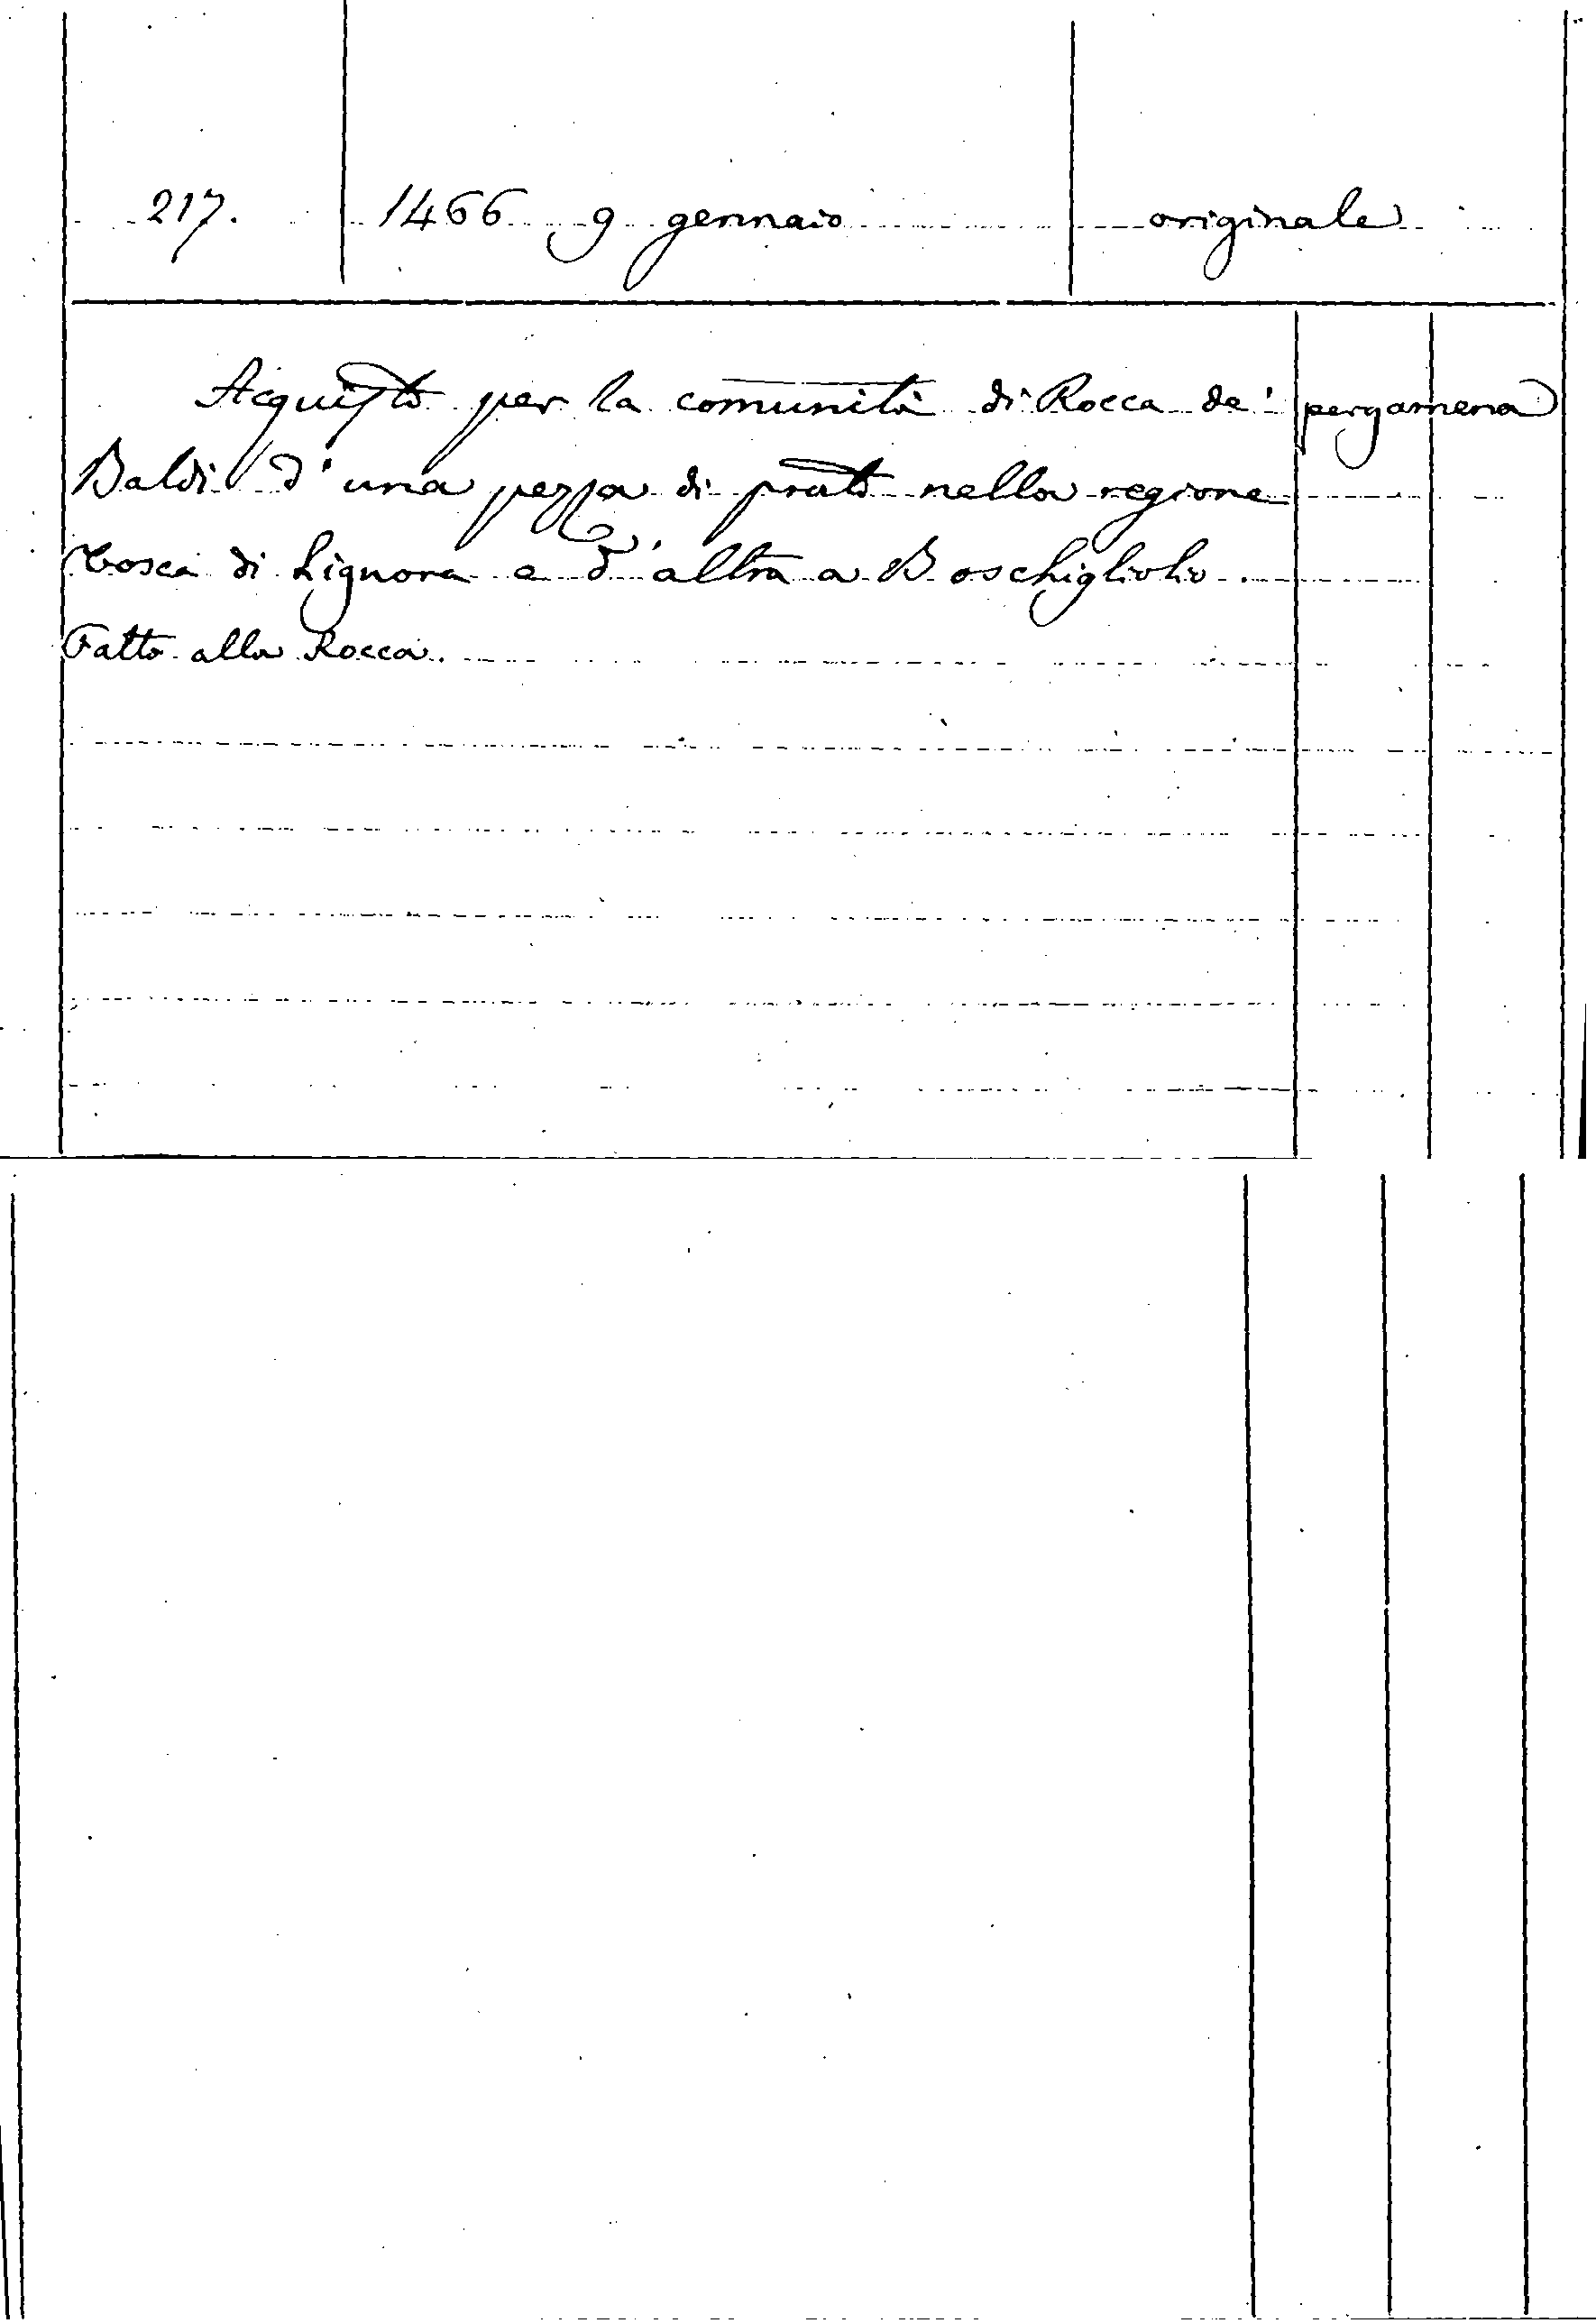 217. 1466 9 gennaio originale
Acquisto per la comunità di Rocca de' pergamena
Baldi d'una pezza di prato nella regione
di Lignora e d'altra a Boschigliolio.
Fatto alla Rocca.